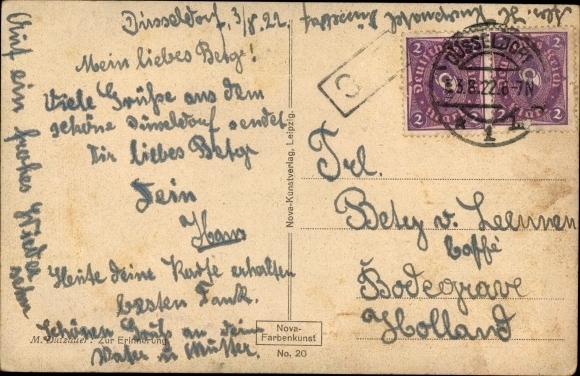 Düsseldorf, 3/8.22.
Mein liebes Betge!
Viele Grüße aus dem
schöne Düsseldorf sendet
Dir liebes Betge
Dein
Hans
Heute deine Karte erhalten
besten Dank.
Schönen Gruß an deine
Vater u Mutter.
Auf ein frohes Wiedersehn
M. Dutzauer: Zur Erinnerung
Nova-Kunstverlag, Leipzig.
Nova-
Farbenkunst
No. 20
2 2 2
Deutsches
DÜSSELDORF
3.8.22.6-7N
1
2 2 2
Frl.
Betsy v. Leeuwen
Caffé
Bodegrave
Holland